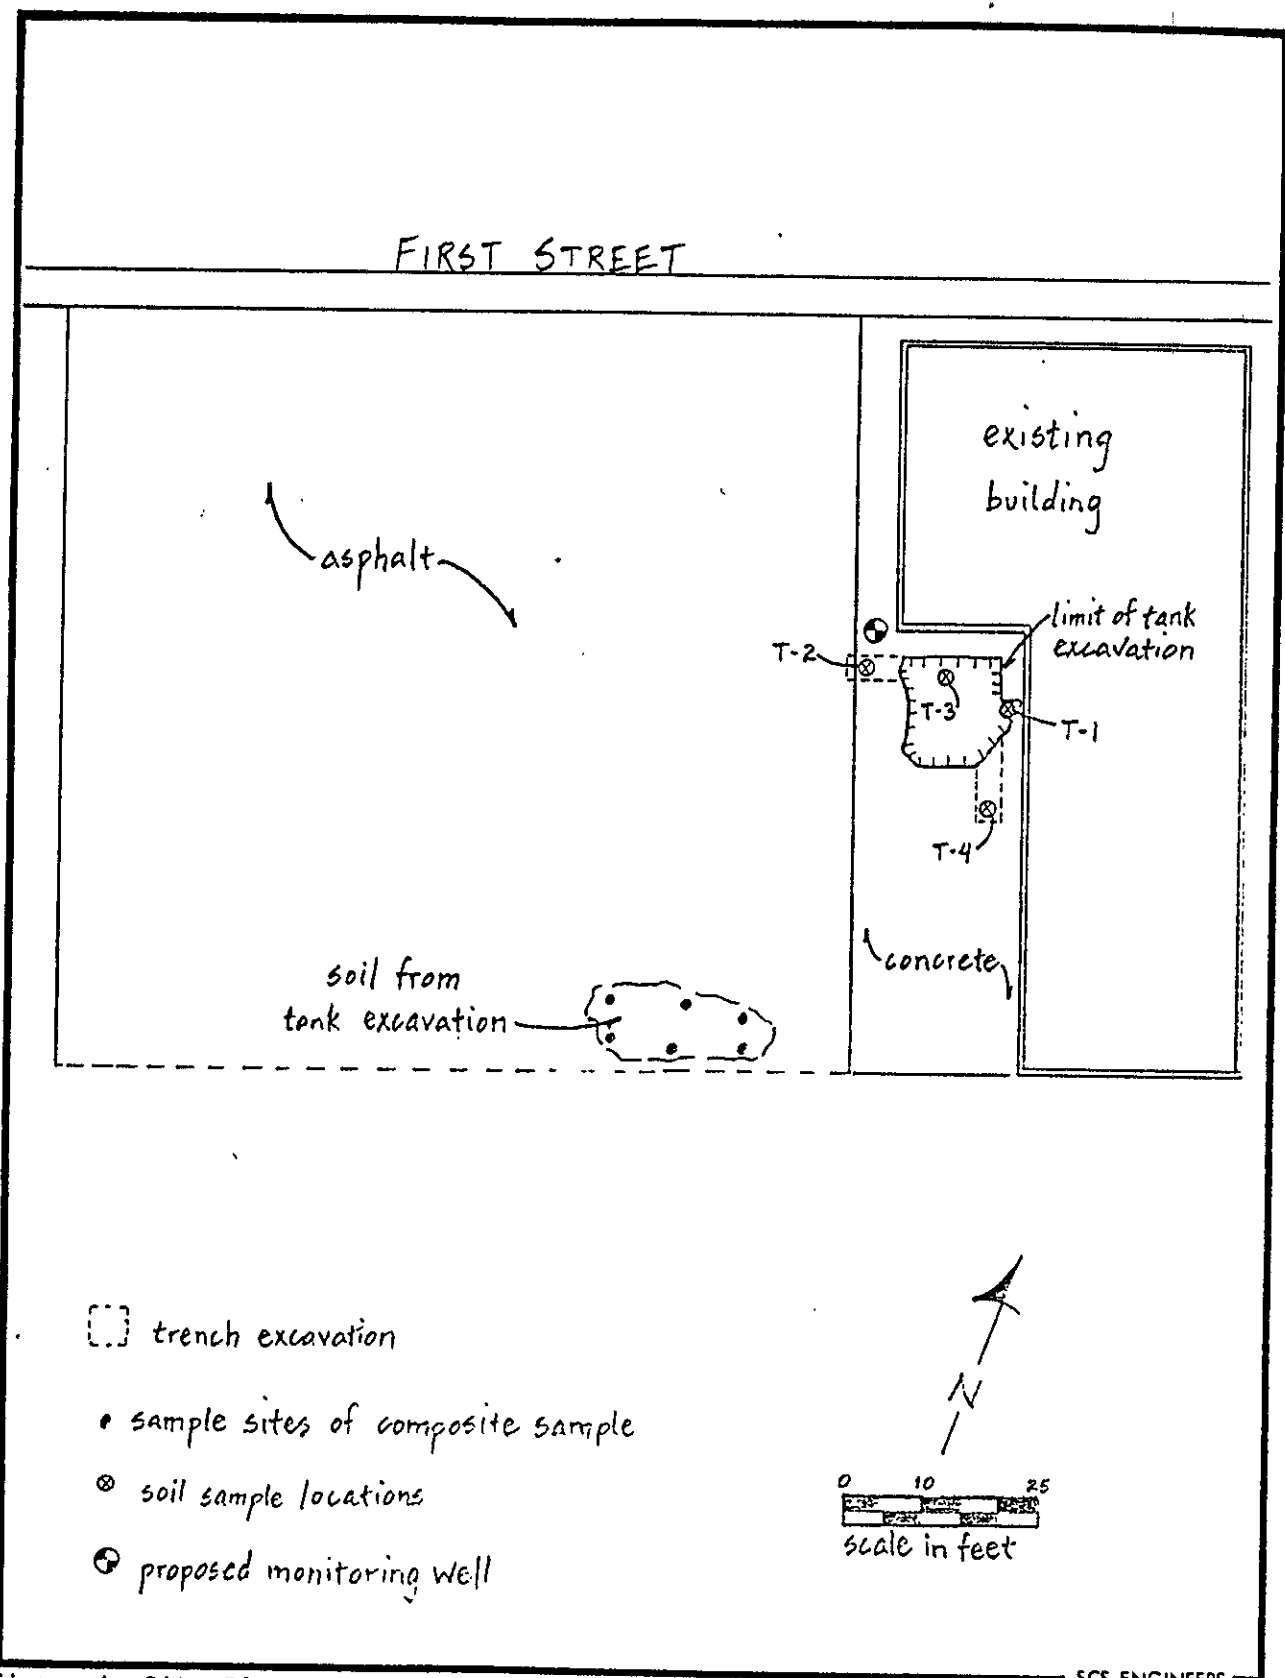 FIRST STREET
existing
building
asphalt
limit of tank
excavation
T-2
T-3
T-1
T-4
concrete
soil from
tank excavation
trench excavation
sample sites of composite sample
soil sample locations
proposed monitoring well
N
0 10 25
scale in feet
SCS ENGINEERS